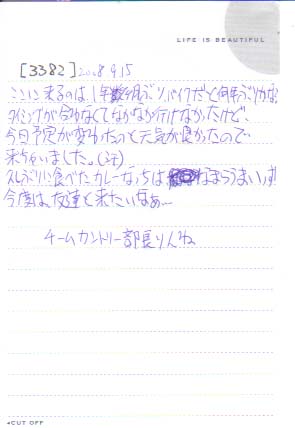 LIFE IS BEAUTIFUL
[3382] 2008.9.15
ここに来るのは、1年数ヶ月ぶり、バイクだと何年ぶりかな
タイミングが合わなくてなかなか行けなかったけど、
今日予定が変わったのと天気が良かったので
来ちゃいました。
久しぶりに食べたカレーなっちは うまいっす
今度は、友達と来たいなぁ〜
チームカントリー部長りんね
CUT OFF